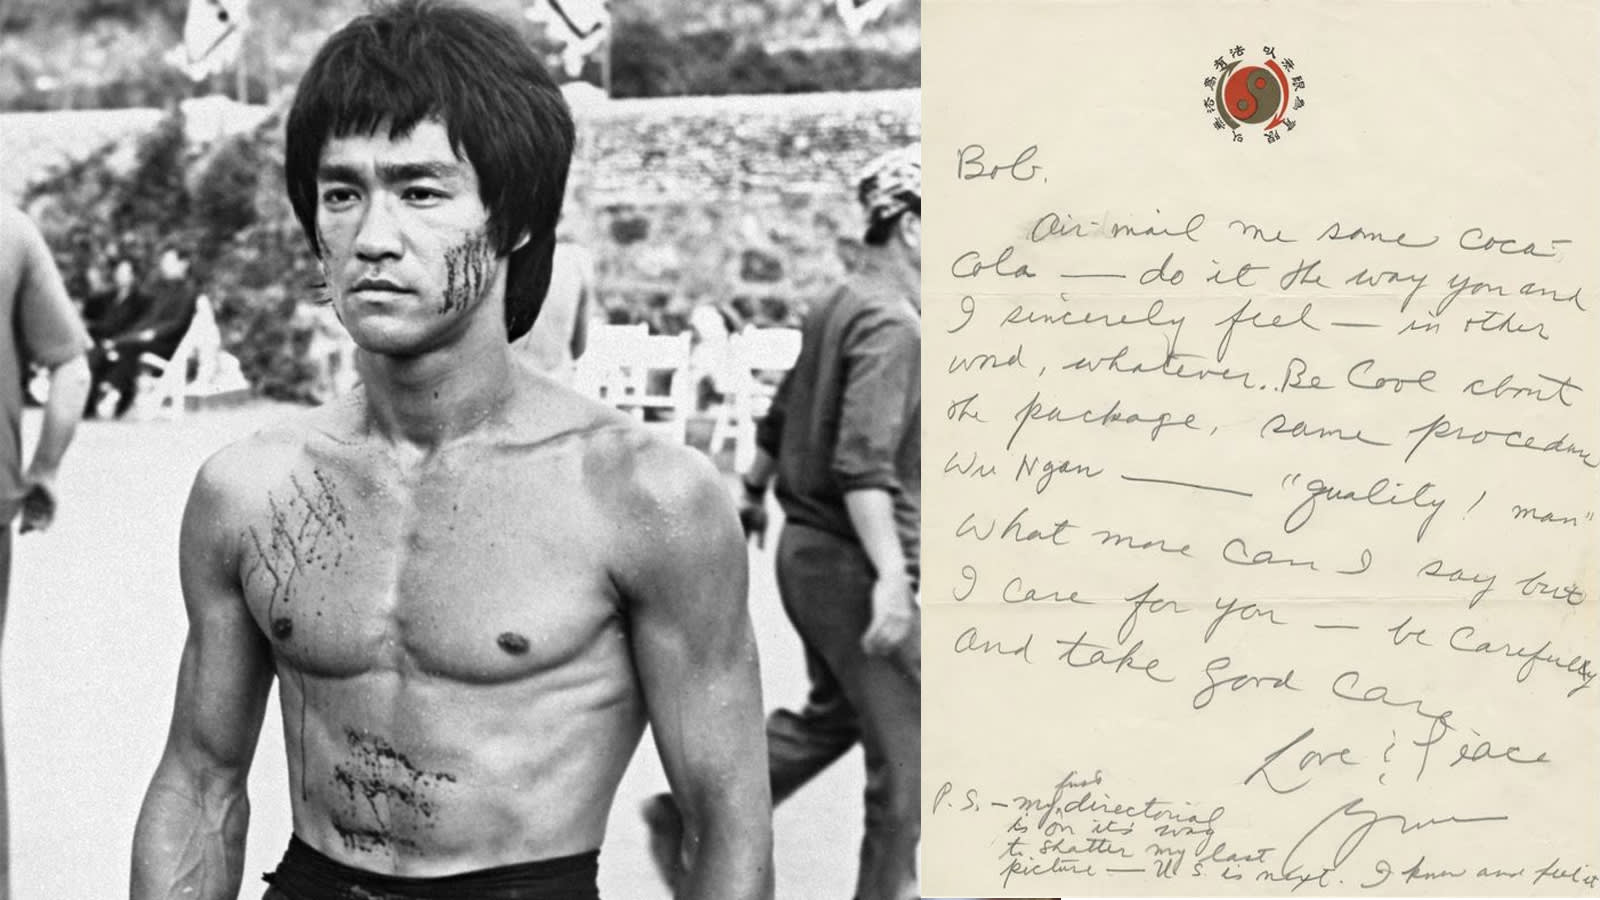 以無限為有限
以無法為有法
Bob.
Air mail me some Coca-
Cola — do it the way you and
I sincerely feel — in other
word, whatever.. Be Cool about
the package, same procedure
Wu Ngan —— "quality! man"
What more can I say but
I care for you — be carefully
and take good care
Love & Peace
Bruce
P.S. — my first directorial
is on it's way
to shatter my last
picture — U.S. is next. I know and feel it